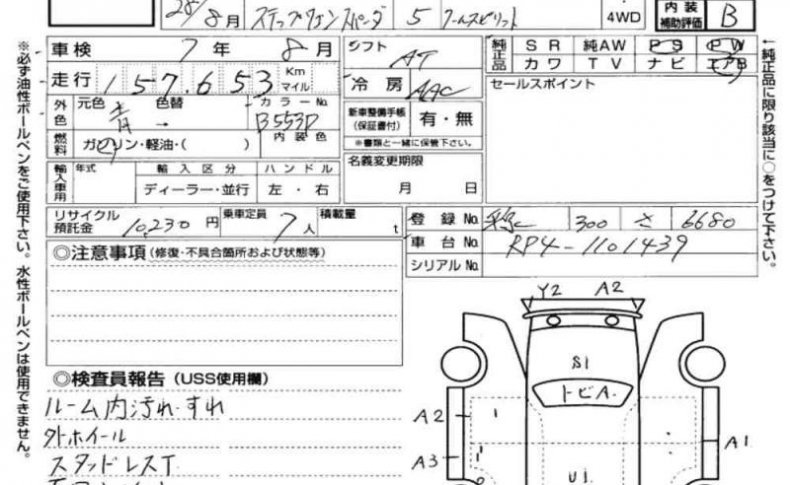 28/8月 ステップワゴンスパーダ 5 クールスピリット 4WD 内装補助評価 B
車検 7年 8月 シフト AT 純正品 SR 純AW PS PW
カワ TV ナビ エアB
走行 157,653 Km マイル 冷房 AAC セールスポイント
外色 元色 青 色替 → カラーNo. B553P 内装色
新車整備手帳(保証書付) 有・無
※書類と一緒に保管下さい。
燃料 ガソリン・軽油・( )
輸入車用 年式 輸入区分 ディーラー・並行 ハンドル 左・右
名義変更期限 月 日
リサイクル預託金 10,230円 乗車定員 7人 積載量 t
登録No. 300 さ 6680
車台No. RP4-1101439
シリアルNo.
◎注意事項(修復・不具合箇所および状態等)
◎検査員報告(USS使用欄)
ルーム内汚れ・すれ
外ホイール
スタッドレスT
Y2 A2
S1
トビA.
A2
A1
A3
U1
※必ず油性ボールペンをご使用下さい。水性ボールペンは使用できません。
←純正品に限り該当に○をつけて下さい。